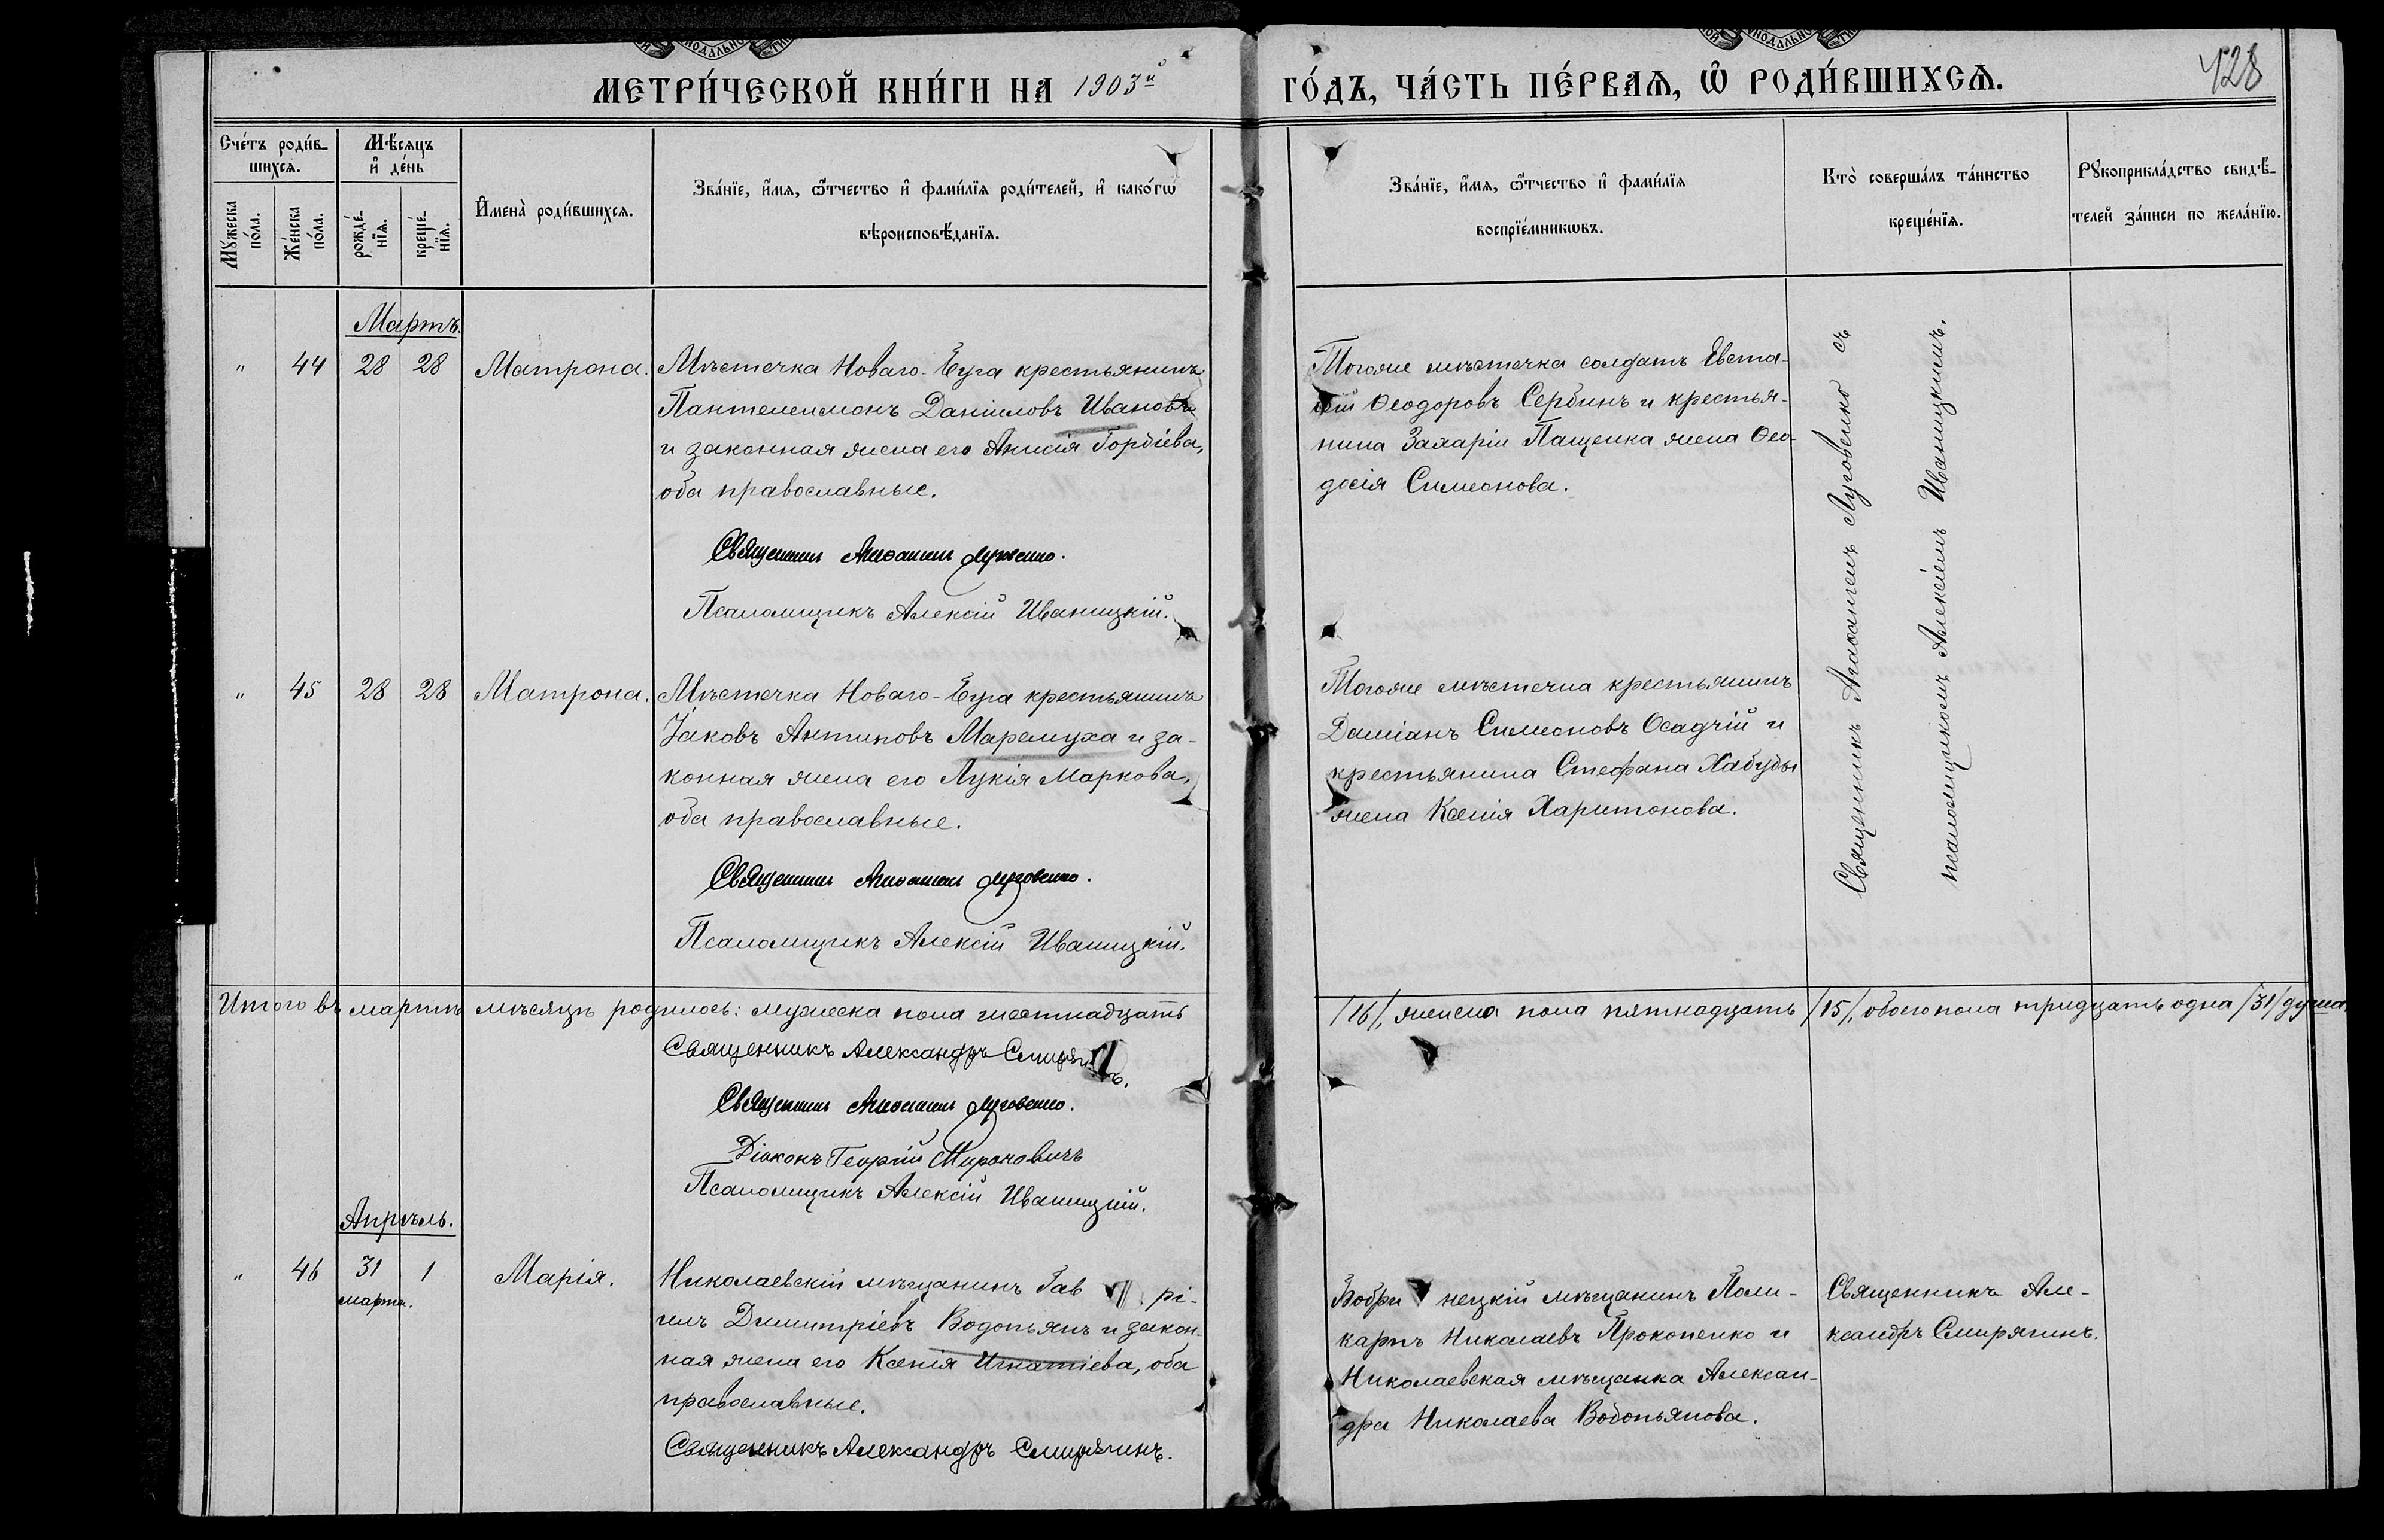 МЕТРИ́ЧЕСКОЙ КНИ́ГИ НА 1903й ГО́ДЪ, ЧА́СТЬ ПЕ́РВАѦ, Ѽ РОДИ́ВШИХСѦ.
428
Сче́тъ роди́в-
шихсѧ.
Мѣ́сѧцъ
и҆ де́нь
Мꙋ́жеска
по́ла.
Же́нска
по́ла.
рожде́-
нїѧ.
креще́-
нїѧ.
И҆мена̀ роди́вшихсѧ.
Зва́нїе, и҆́мѧ, ѻ҆́тчество и҆ фами́лїѧ роди́телей, и҆ како́гѡ
вѣроисповѣ́данїѧ.
Зва́нїе, и҆́мѧ, ѻ҆́тчество и҆ фами́лїѧ
воспрїе́мникѡвъ.
Кто̀ соверша́лъ та́инство
креще́нїѧ.
Рꙋкоприкла́дство свидѣ́-
телей за́писи по жела́нїю.
Мартъ.
" 44 28 28 Матрона.
Мѣстечка Новаго-Буга крестьянинъ
Пантелеимонъ Даніиловъ Ивановъ
и законная жена его Анисія Гордіева,
оба православные.
Священникъ Агафангелъ Луговенко.
Псаломщикъ Алексій Иваницкій.
Тогоже мѣстечка солдатъ Евста-
фій Ѳеодоровъ Сербинъ и крестья-
нина Захаріи Пащенка жена Ѳео-
досія Симеонова.
Священникъ Агафангелъ Луговенко съ
псаломщикомъ Алексіемъ Иваницкимъ.
" 45 28 28 Матрона.
Мѣстечка Новаго-Буга крестьянинъ
Іаковъ Антиповъ Маремуха и за-
конная жена его Лукія Маркова,
оба православные.
Священникъ Агафангелъ Луговенко.
Псаломщикъ Алексій Иваницкій.
Тогоже мѣстечка крестьянинъ
Даміанъ Симеоновъ Осадчій и
крестьянина Стефана Хабуды
жена Ксенія Харитонова.
Итого въ мартѣ мѣсяцѣ родилось: мужеска пола шестнадцать /16/, женска пола пятнадцать /15/, обоего пола тридцать одна /31/ душа.
Священникъ Александръ Смирягинъ.
Священникъ Агафангелъ Луговенко.
Діаконъ Георгій Мироновичъ
Псаломщикъ Алексій Иваницкій.
Апрѣль.
" 46 31 1 Марія.
марта.
Николаевскій мѣщанинъ Гаврі-
илъ Димитріевъ Водопьянъ и закон-
ная жена его Ксенія Игнатіева, оба
православные.
Священникъ Александръ Смирягинъ.
Бобринецкій мѣщанинъ Поли-
карпъ Николаевъ Прокопенко и
Николаевская мѣщанка Алексан-
дра Николаева Водопьянова.
Священникъ Але-
ксандръ Смирягинъ.